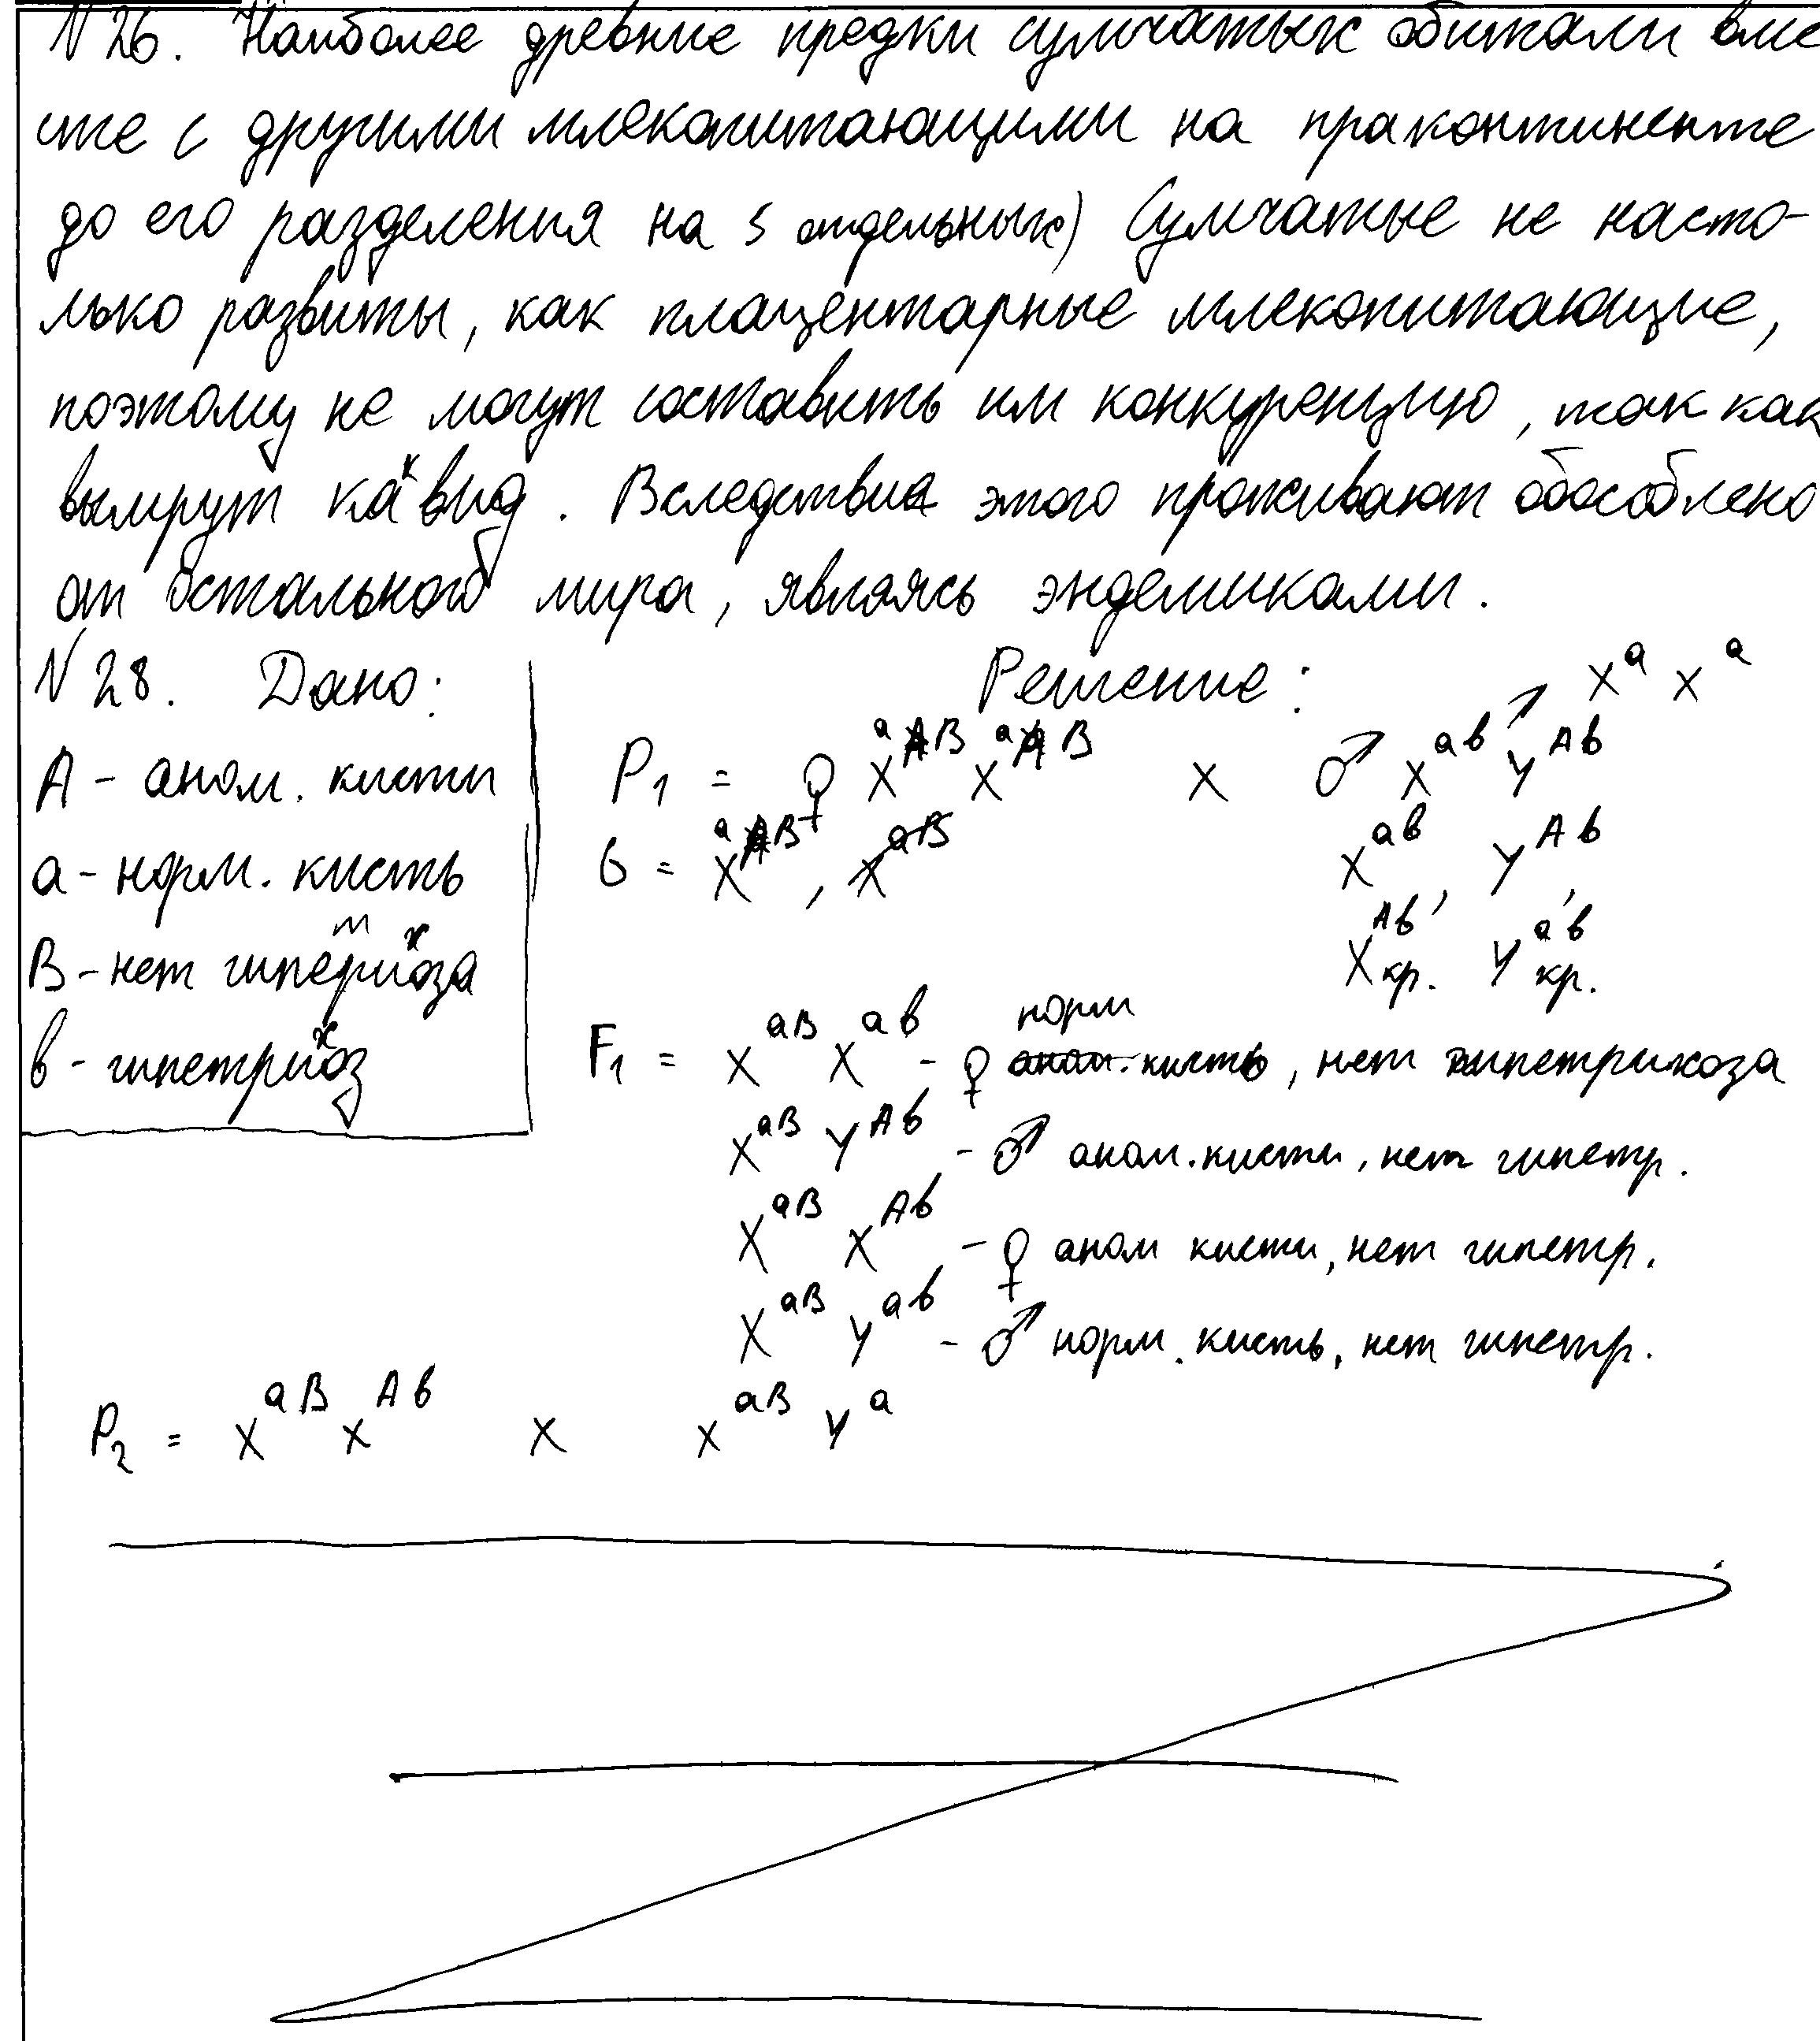 N 26. Наиболее древние предки сумчатых обитали вме
сте с другими млекопитающими на праконтиненте
до его разделения на 5 отдельных) Сумчатые не насто-
лько развиты, как плацентарные млекопитающие,
поэтому не могут составить им конкуренцию, так как
вымрут как вид. Вследствие этого проживают обособлено
от остального мира, являясь эндемиками.
N 28. Дано: Решение: X^a X^a
A - аном. кисти P₁ = ♀ X^aB X^aB x ♂ X^ab Y^Ab
a - норм. кисть G = X^aB, X^aB X^ab, Y^Ab,
B - нет гипертрихоза X^Ab кр. Y^ab кр.
b - гипетрихоз F₁ = X^aB X^ab - ♀ норм кисть, нет гипетрихоза
X^aB Y^Ab - ♂ аном. кисти, нет гипетр.
X^aB X^Ab - ♀ аном кисти, нет гипетр.
X^aB Y^ab - ♂ норм. кисть, нет гипетр.
P₂ = X^aB X^Ab x X^aB Y^a